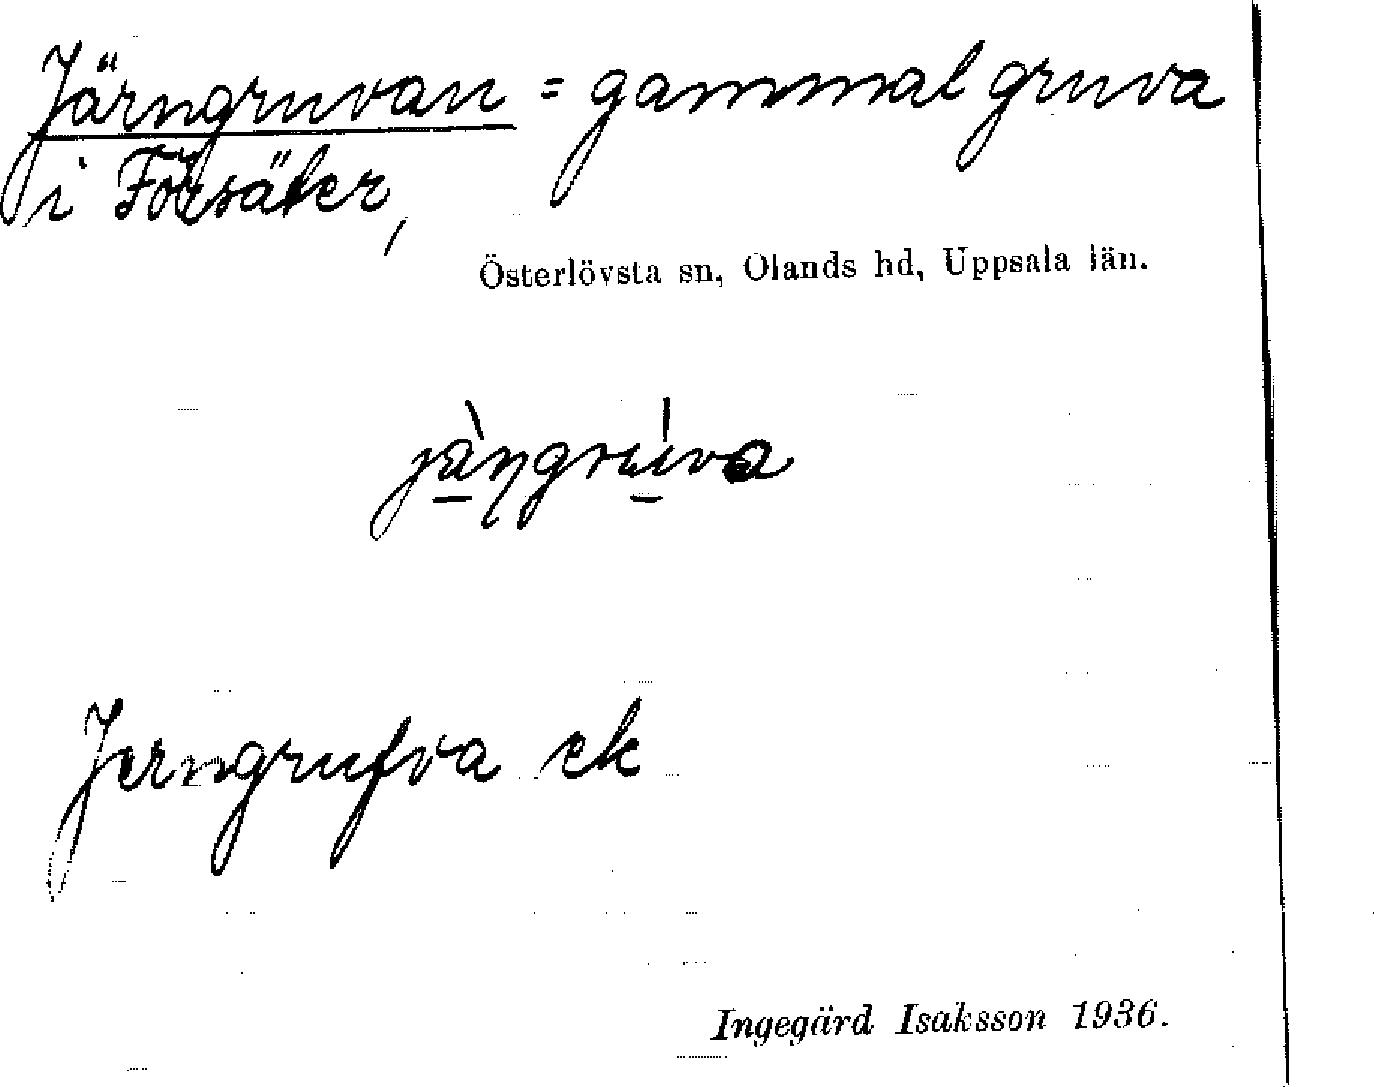 Järngruvan = gammal gruva
i Försäter,
Österlövsta sn, Olands hd, Uppsala län.
Jerngrufva ek
Ingegärd Isaksson 1936.